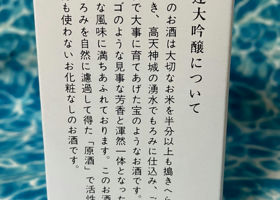 大吟醸について
のお酒は大切なお米を半分以上も搗きへら
き、高天神城の湧水でもろみに仕込み、こ
で大事に育てあげた宝のようなお酒です。
ゴのような見事な芳香と渾然一体となった
な風味に満ちあふれております。このお酒
ろみを自然に濾過して得た「原酒」で活性
も使わないお化粧なしのお酒です。